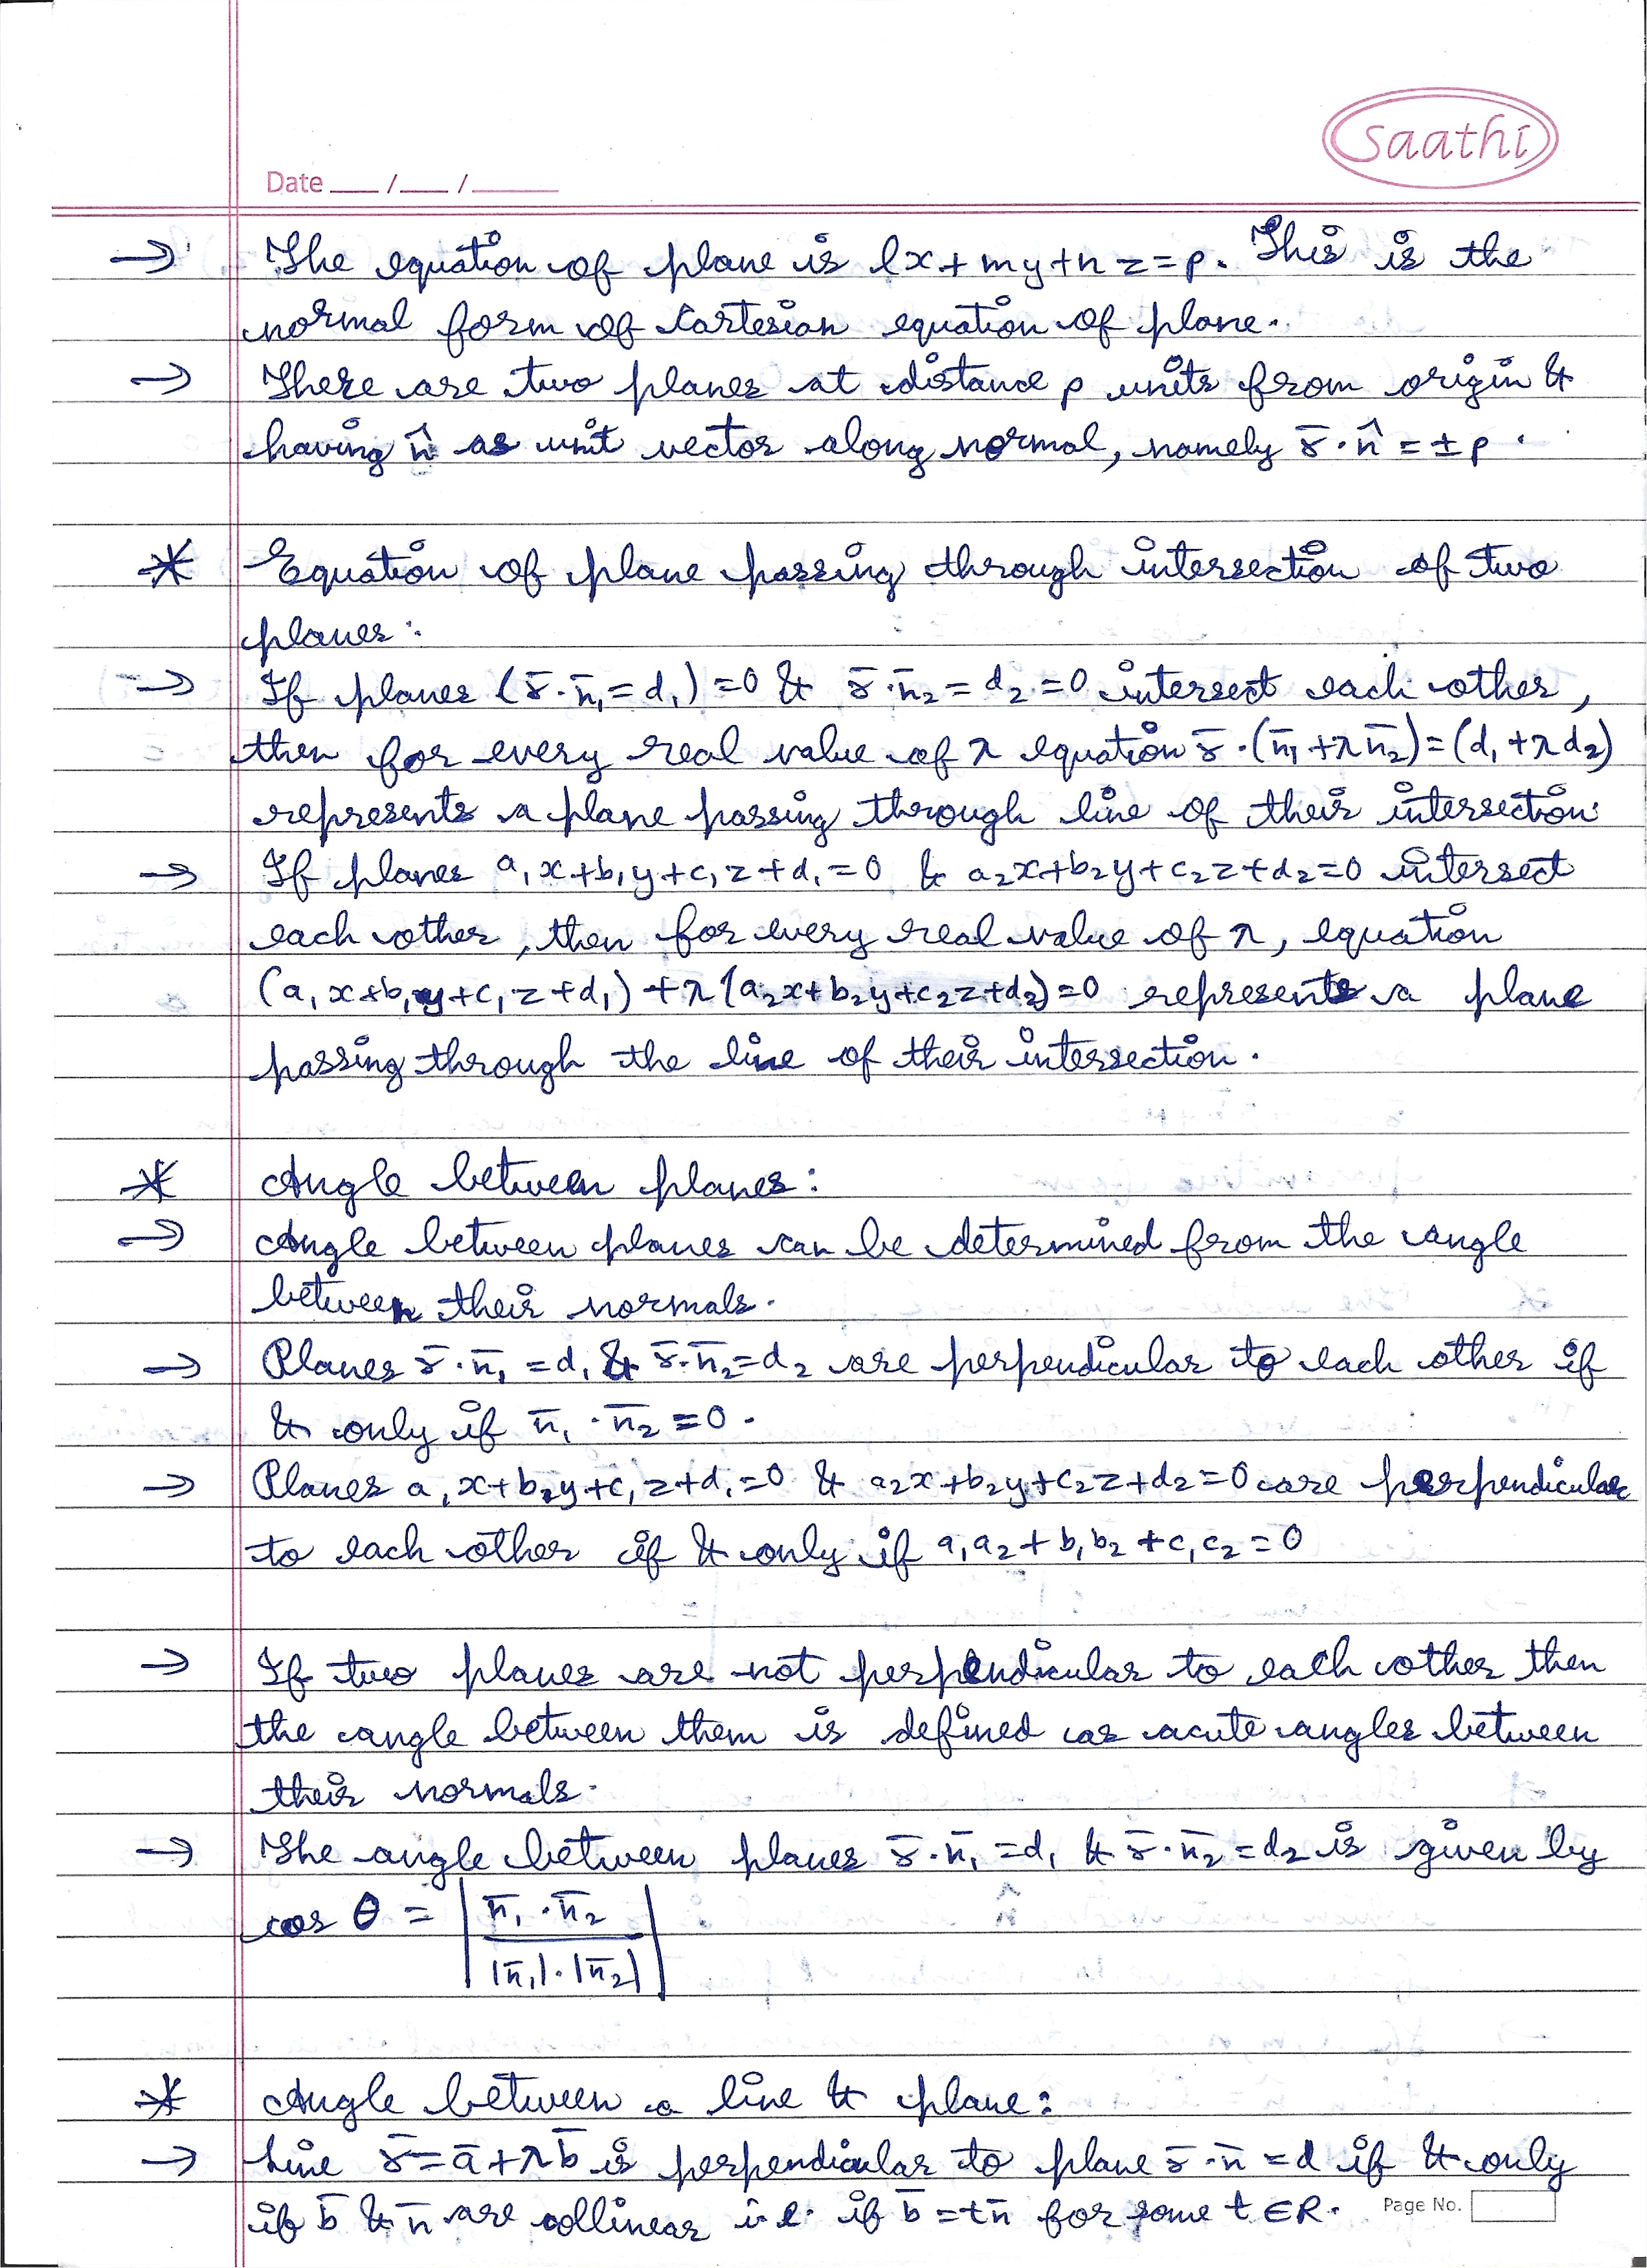 saathi
Date ___ / ___ / ______
→ The equation of plane is lx + my + nz = p. This is the
normal form of Cartesian equation of plane.
→ There are two planes at distance p units from origin &
having n̂ as unit vector along normal, namely r̄ · n̂ = ± p.
* Equation of plane passing through intersection of two
planes:
→ If planes (r̄ · n̄₁ = d₁) = 0 & r̄ · n̄₂ = d₂ = 0 intersect each other,
then for every real value of λ equation r̄ · (n̄₁ + λn̄₂) = (d₁ + λd₂)
represents a plane passing through line of their intersection.
→ If planes a₁x + b₁y + c₁z + d₁ = 0 & a₂x + b₂y + c₂z + d₂ = 0 intersect
each other, then for every real value of λ, equation
(a₁x + b₁y + c₁z + d₁) + λ(a₂x + b₂y + c₂z + d₂) = 0 represents a plane
passing through the line of their intersection.
* Angle between planes:
→ Angle between planes can be determined from the angle
between their normals.
→ Planes r̄ · n̄₁ = d₁ & r̄ · n̄₂ = d₂ are perpendicular to each other if
& only if n̄₁ · n̄₂ = 0.
→ Planes a₁x + b₂y + c₁z + d₁ = 0 & a₂x + b₂y + c₂z + d₂ = 0 are perpendicular
to each other if & only if a₁a₂ + b₁b₂ + c₁c₂ = 0
→ If two planes are not perpendicular to each other then
the angle between them is defined as acute angles between
their normals.
→ The angle between planes r̄ · n̄₁ = d₁ & r̄ · n̄₂ = d₂ is given by
cos θ = | n̄₁ · n̄₂ / |n̄₁| · |n̄₂| |
* Angle between a line & plane:
→ Line r̄ = ā + λb̄ is perpendicular to plane r̄ · n̄ = d if & only
if b̄ & n̄ are collinear i.e. if b̄ = tn̄ for some t ∈ R.
Page No.